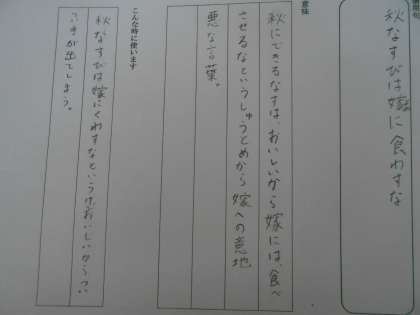 秋なすびは嫁に食わすな
意味
秋にできるなすは、おいしいから嫁には、食べ
させるなというしゅうとめから嫁への意地
悪な言葉。
こんな時に使います
秋なすびは嫁にくわすなというけどおいしいからつい